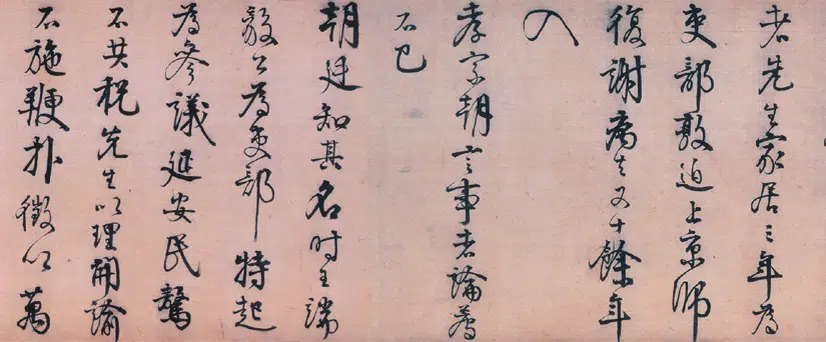 者先生家居三年為
吏部敦迫上京師
復謝病去又十餘年
入
孝宗朝言事者論薦
不已
朝廷知其名時王端
毅公為吏部特起
為參議延安民驁
不共稅先生以理開諭
不施鞭扑徵以萬